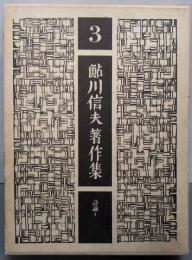 3
鮎川信夫著作集